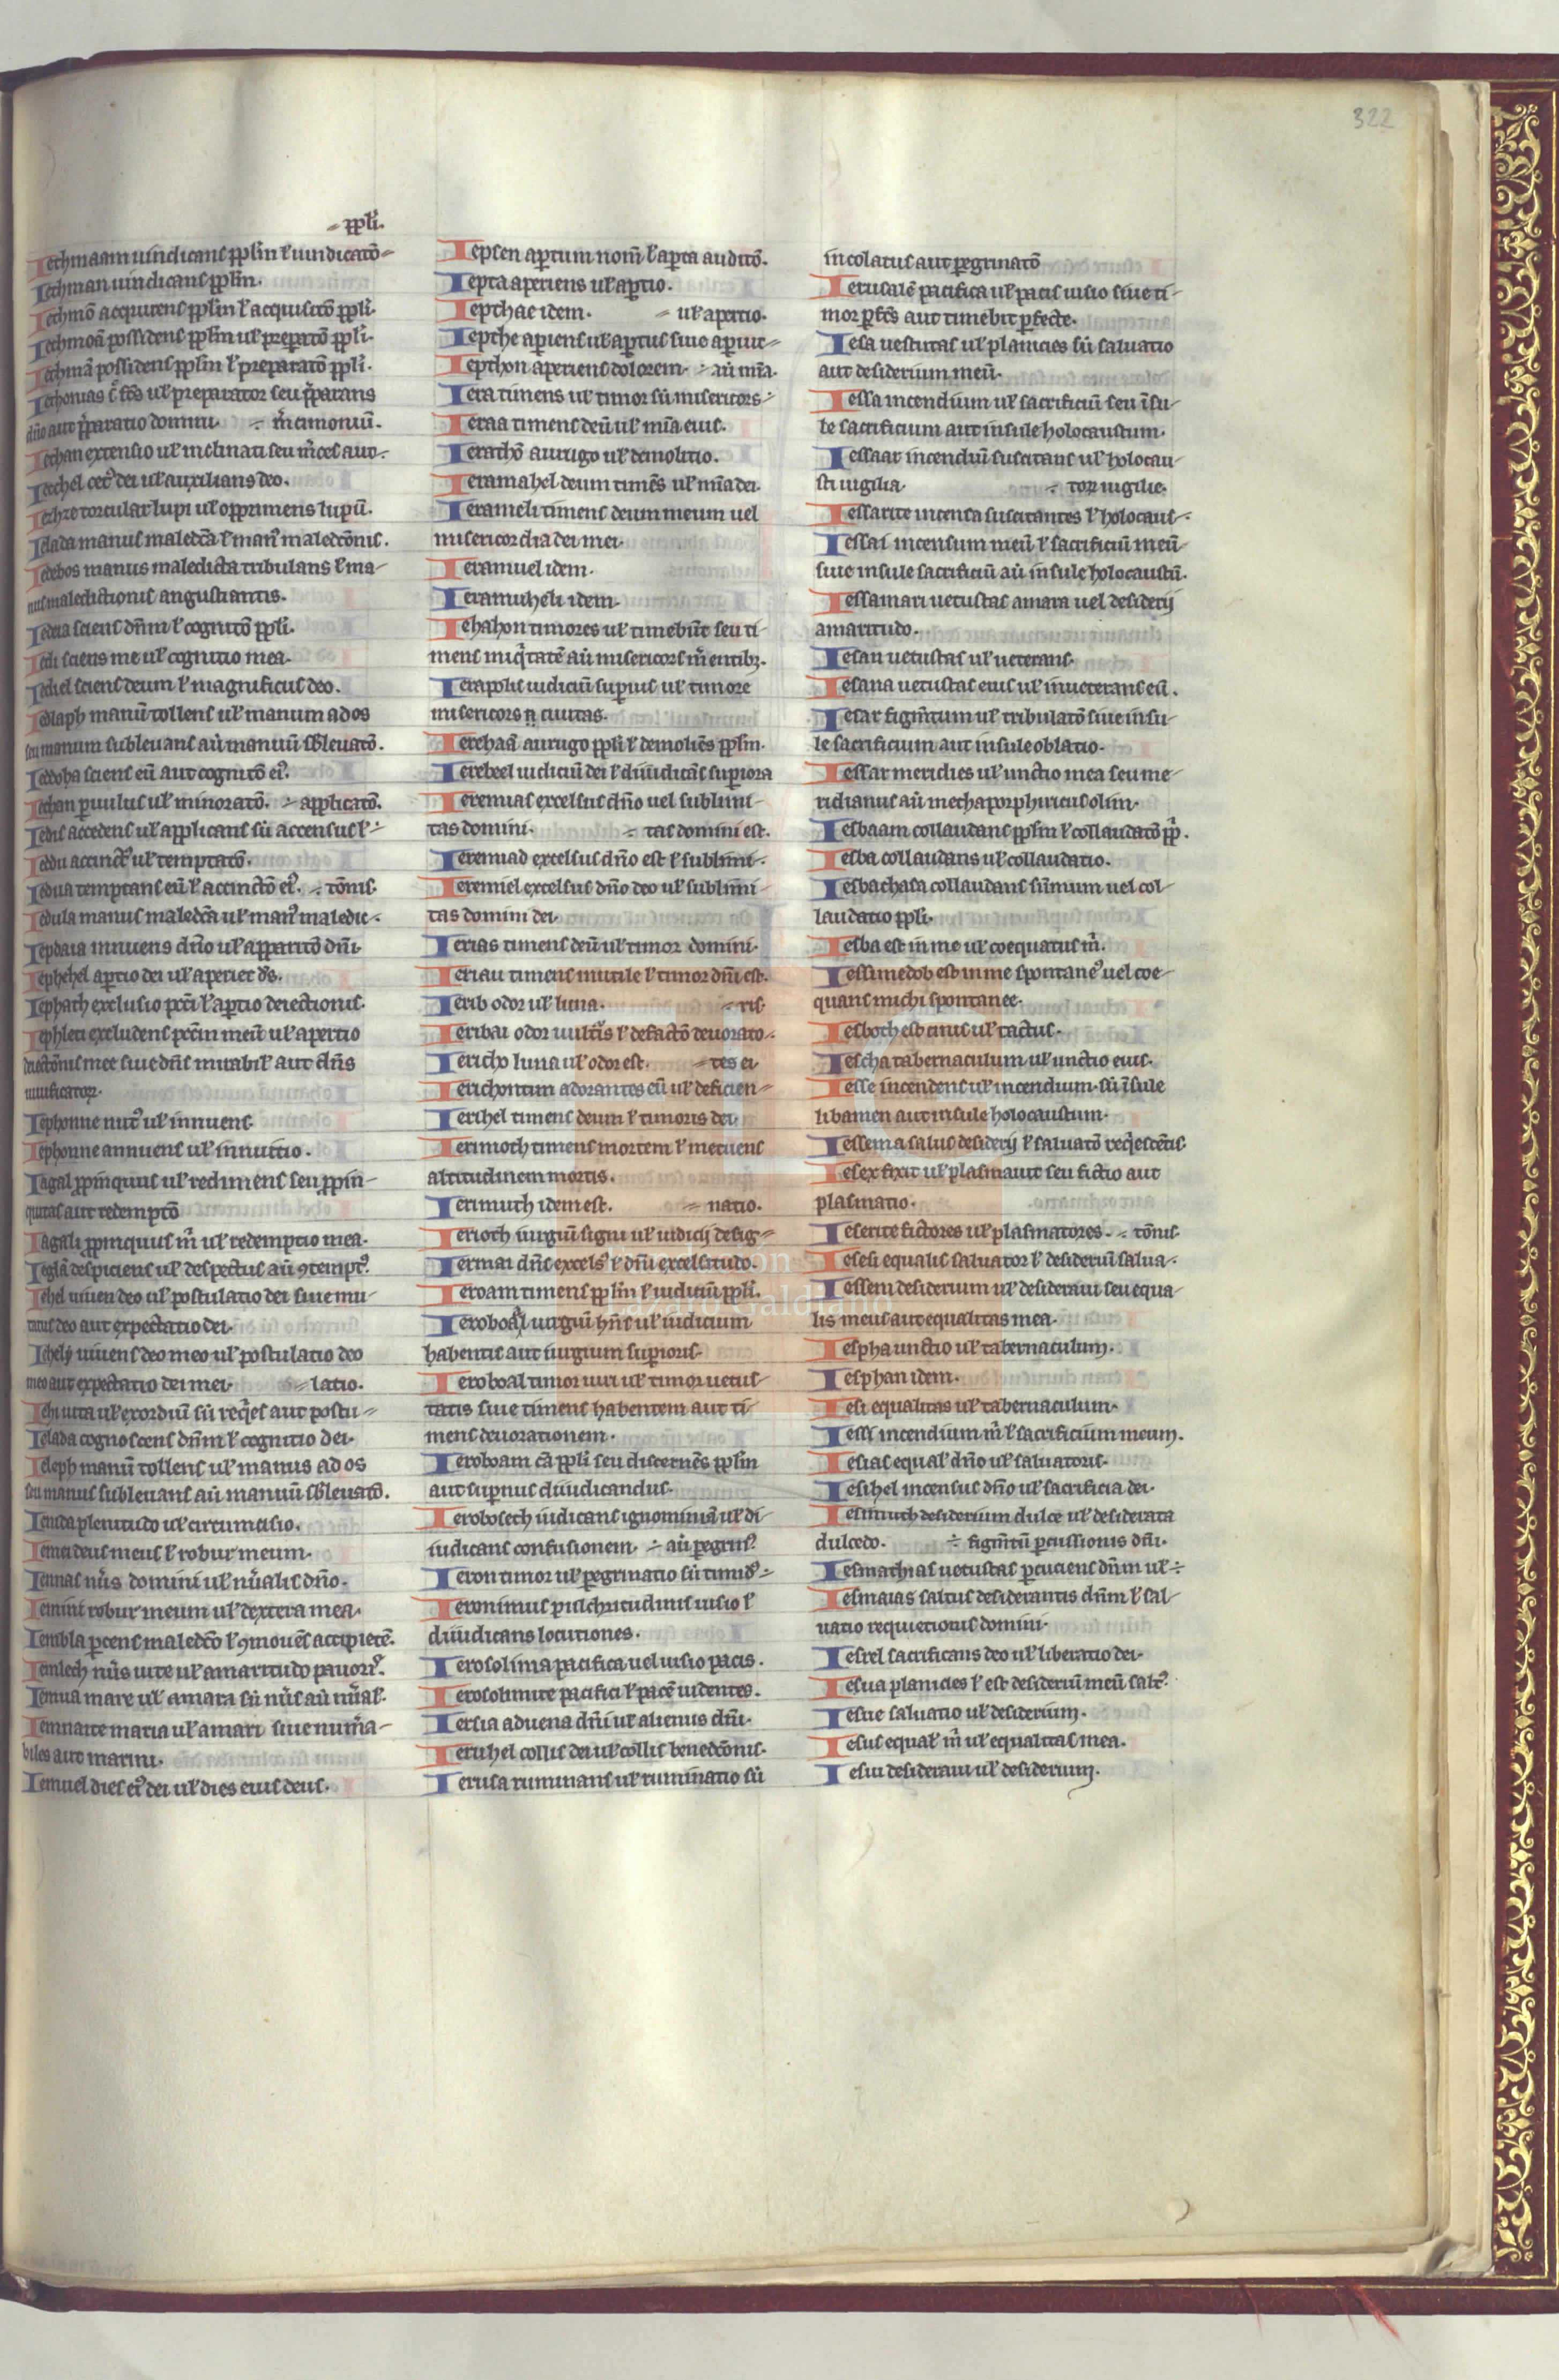 322
⹀ ppl'i.
Iechmaam uindicans ppl'm ł uindicatō⹀
Iechman uindicans ppl'm.
Iechmō acquirens ppl'm ł acquisitō ppl'i.
Iechmoā possidens ppl'm ul' preparatō ppl'i.
Iechmā possidens ppl'm ł preparatō ppl'i.
Iechonias ul' preparator seu p̄parans
dn̄o aut p̄paratio domini. m̄cimoniū.
Iechan extensio ul' inclinati seu m̄ces aut
Iecchel cet' dei ul' auxilians deo.
Iechze torcular lupi ul' opprimens lupū.
Ielada manus maledc̄a ł man' maledc̄onis.
Iedebos manus maledicta tribulans ł ma-
nus maledictionis angustiantis.
Iedeia sciens dn̄m ł cognitō ppl'i.
Iedi sciens me ul' cognitio mea.
Iediel sciens deum ł magnificus deo.
Iedlaph manū tollens ul' manum ad os
seu manum subleuans aū manuū sb̄leuatō.
Ieddoha sciens eū aut cognitō ei'.
Iechan puulus ul' minoratō. ÷ applicatō.
Iedis accedens ul' applicans sū accensus ł ÷
Ieddu accinct' ul' temptatō.
Iedua temptans eū ł accinctō ei'. ÷ tōnis.
Iedula manus maledc̄a ul' man' maledic ÷
Iepdaia innuens dn̄o ul' apparitō dn̄i.
Iephehel aptio dei ul' aperiet d's.
Iephath exclusio pcc̄i ł aptio deiectionis.
Iephleti excludens pcc̄m meū ul' apertio
deiectōnis mee siue dn̄s mirabil' aut dn̄s
mirificator.
Iephonne nut' ul' innuens.
Iephonne annuens ul' innuitio.
Iagal ppinquus ul' redimens seu ppin-
quitas aut redemptō
Iagali ppinquus m̄ ul' redemptio mea.
Ieglā despiciens ul' despectus aū ꝯtempt'.
Iehel uiuen deo ul' postulatio dei siue mu-
tatus deo aut expectatio dei.
Iehelÿ uiuens deo meo ul' postulatio deo
meo aut expectatio dei mei. ⹀ latio.
Iehi uita ul' exordiū sū req̇es aut postu⹀
Ieiada cognoscens dn̄m ł cognitio dei.
Ieleph manū tollens ul' manus ad os
seu manus subleuans aū manuū sb̄leuatō.
Iemda plenitudo ul' circumcisio.
Iemei deus meus ł robur meum.
Iemnas nūs domini ul' nūalis dn̄o.
Iemini robur meum ul' dextera mea.
Iembla pcens maledc̄o ł ꝯmouēs accipietē.
Iemlech nūs uite ul' amaritudo pauor'.
Iemua mare ul' amara sū nūs aū nūal'.
Iemnaite maria ul' amari siue num̄a-
biles aut marini.
Iemuel dies ei' dei ul' dies eius deus.
Iepsen aptum nom̄ ł apta auditō.
Iepta aperiens ul' aptio.
Iepthae idem. ⹀ ul' apertio.
Iepthe apiens ul' aptus siue apiuit⹀
Iepthon aperiens dolorem. ÷ aū mīa.
Iera timens ul' timor sū misericors ÷
Ieraa timens deū ul' mīa eius.
Ierachō aurugo ul' demolitio.
Ieramahel deum timēs ul' mīa dei.
Ierameli timens deum meum uel
misericordia dei mei.
Ieramuel idem.
Ieramuheli idem.
Iehahon timores ul' timebūt seu ti-
mens iniq̇tatē aū misericors m̄entibȝ.
Ierapolis iudiciū supius ul' timore
misericors n̄ ciuitas.
Ierchaā aurugo ppl'i ł demoliēs ppl'm.
Ierebeel iudiciū dei ł diiudicās supiora
Ieremias excelsus dn̄o uel sublimi-
tas domini. ÷ tas domini est.
Ieremiad excelsus dn̄o est ł sublimi÷
Ieremiel excelsus dn̄o deo ul' sublimi-
tas domini dei.
Ierias timens deū ul' timor domini.
Ieriau timens inutile ł timor dn̄i est.
Ierib odor ul' luna. ⹀ ris.
Ieribai odor uult's ł defactō deuorato÷
Iericho luna ul' odor est. ⹀ tes ei
Ierichontim adorantes eū ul' deficien⹀
Ierihel timens deum ł timoris dei.
Ierimoth timens mortem ł metuens
altitudinem mortis.
Ierimuth idem est. ⹀ natio.
Ierioth iurgiū signi ul' iudicij desig⹀
Iermai dn̄s excels' ł dn̄i excelsitudo.
Ieroam timens ppl'm ł iudiciū ppl'i.
Ieroboal iurgiū hn̄s ul' iudicium
habentis aut iurgium supioris.
Ieroboal timor uiri ul' timor uetus-
tatis siue timens habentem aut ti-
mens deuorationem.
Ieroboam cā ppl'i seu discernēs ppl'm
aut supnus diiudicandus.
Ierobosech iudicans ignominiā ul' di-
iudicans confusionem. ÷ aū pegrin'
Ieron timor ul' pegrinatio sū timid' ÷
Ieronimus pulchritudinis uisio ł
diiudicans locutiones.
Ierosolima pacifica uel uisio pacis.
Ierosolimite pacifici ł pacē uidentes.
Iersia aduena dn̄i ul' alienus dn̄i.
Ieruhel collis dei ul' collis benedc̄onis.
Ierusa ruminans ul' ruminatio sū
incolatus aut pegrinatō
Ierusalē pacifica ul' pacis uisio siue ti-
mor pfc̄s aut timebit pfecte.
Iesa uestutas ul' planicies sū saluatio
aut desiderium meū.
Iessa incendium ul' sacrificiū seu īsu-
le sacrificium aut insule holocaustum.
Iessaar incendiū suscitans ul' holocau-
sti uigilia. ÷ tor uigilie.
Iessarite incensa suscitantes ł holocaus ÷
Iessai incensum meū ł sacrificiū meū-
siue insule sacrificiū aū insule holocaustū.
Iessamari uetustas amara uel desiderij
amaritudo.
Iesan uetustas ul' ueterans.
Iesana uetustas eius ul' inueterans est.
Iesar figm̄tum ul' tribulatō siue insu-
le sacrificium aut insule oblatio.
Iessar meridies ul' unctio mea seu me-
ridianus aū mecha porphiricus olim.
Iesbaam collaudans ppl'm ł collaudatō pp̄.
Iesba collaudans ul' collaudatio.
Iesbachasa collaudans sūmum uel col-
laudatio ppl'i.
Iesba est in me ul' coequatus m̄.
Iessimedob est in me spontane' uel coe-
quans michi spontanee.
Iesboch est cinis ul' tactus.
Iescha tabernaculum ul' unctio eius.
Iesse incendens ul' incendium. sū īsule
libamen aut insule holocaustum.
Iessema salus desiderij ł saluatō req̇escētis
Iesex fixit ul' plasmauit seu fictio aut
plasmatio.
Ieserite fictores ul' plasmatores. ÷ tōnis.
Iesesi equalis saluator ł desideriū salua÷
Iessem desiderium ul' desideraui seu equa-
lis meus aut equalitas mea.
Iespha unctio ul' tabernaculum.
Iesphan idem.
Iesi equalitas ul' tabernaculum.
Iessi incendium m̄ ł sacrificium meum.
Iesias equal' dn̄o ul' saluatoris.
Iesihel incensus dn̄o ul' sacrificia dei.
Iesimuth desiderium dulce ul' desiderata
dulcedo. ÷ figm̄tū pcussionis dn̄i.
Iesmachias uetustas pcuciens dn̄m ul' ÷
Iesmaias saltus desiderantis dn̄m ł sal-
uatio requietionis domini.
Iesrel sacrificans deo ul' liberatio dei.
Iesua planicies ł est desideriū meū salt'
Iesue saluatio ul' desiderium.
Iesus equal' m̄ ul' equalitas mea.
Iesui desideraui ul' desiderium.